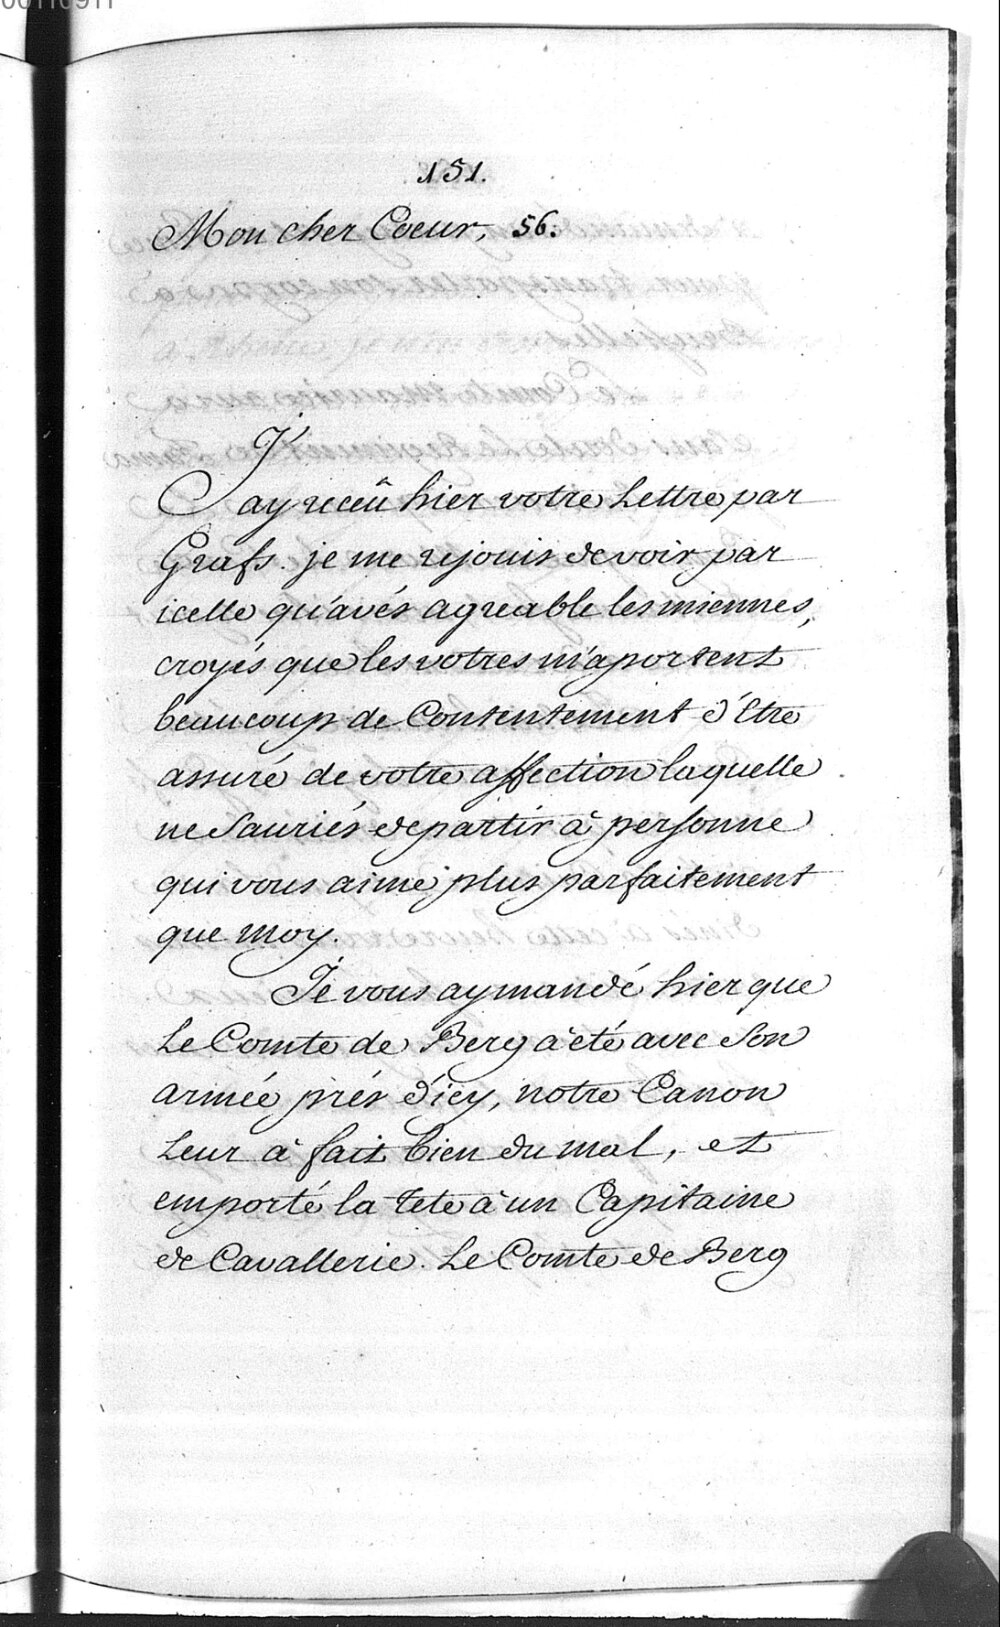 151.
Mon cher Coeur, 56.
J'
ay receû hier votre Lettre par
Grafs. je me rejouis de voir par
icelle qu'avés agreable les miennes,
croyés que les votres m'aportent
beaucoup de Contentement d'Etre
assuré de votre affection laquelle
ne Sauriés departir à personne
qui vous aime plus parfaitement
que moy.
Je vous ay mandé hier que
Le Comte de Berg à eté avec Son
armée prés d'icy, notre Canon
Leur à fait bien du mal, et
emporté la tete à un Capitaine
de Cavallerie. Le Comte de Berg